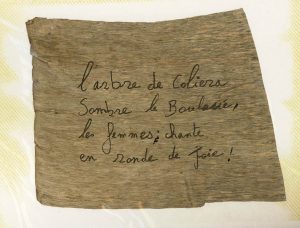 l'arbre de Coliera
Sombre le Boulasie,
les femmes; chante
en ronde de Joie!